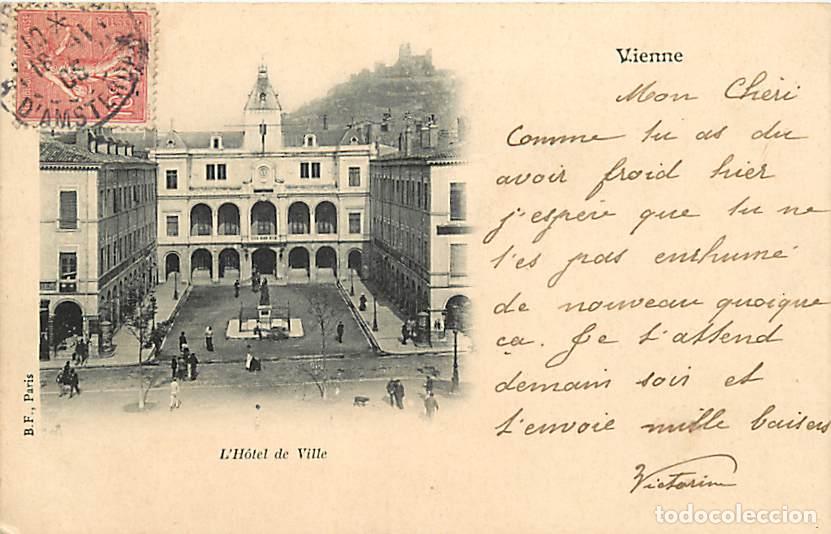 Vienne
Mon Chéri
Comme tu as du
avoir froid hier
j'espère que tu ne
t'es pas enrhumé
de nouveau quoique
ça. Je t'attend
demain soir et
t'envoie mille baisers
Victorine
B.F., Paris
L'Hôtel de Ville
D'AMSTERDAM
todocoleccion